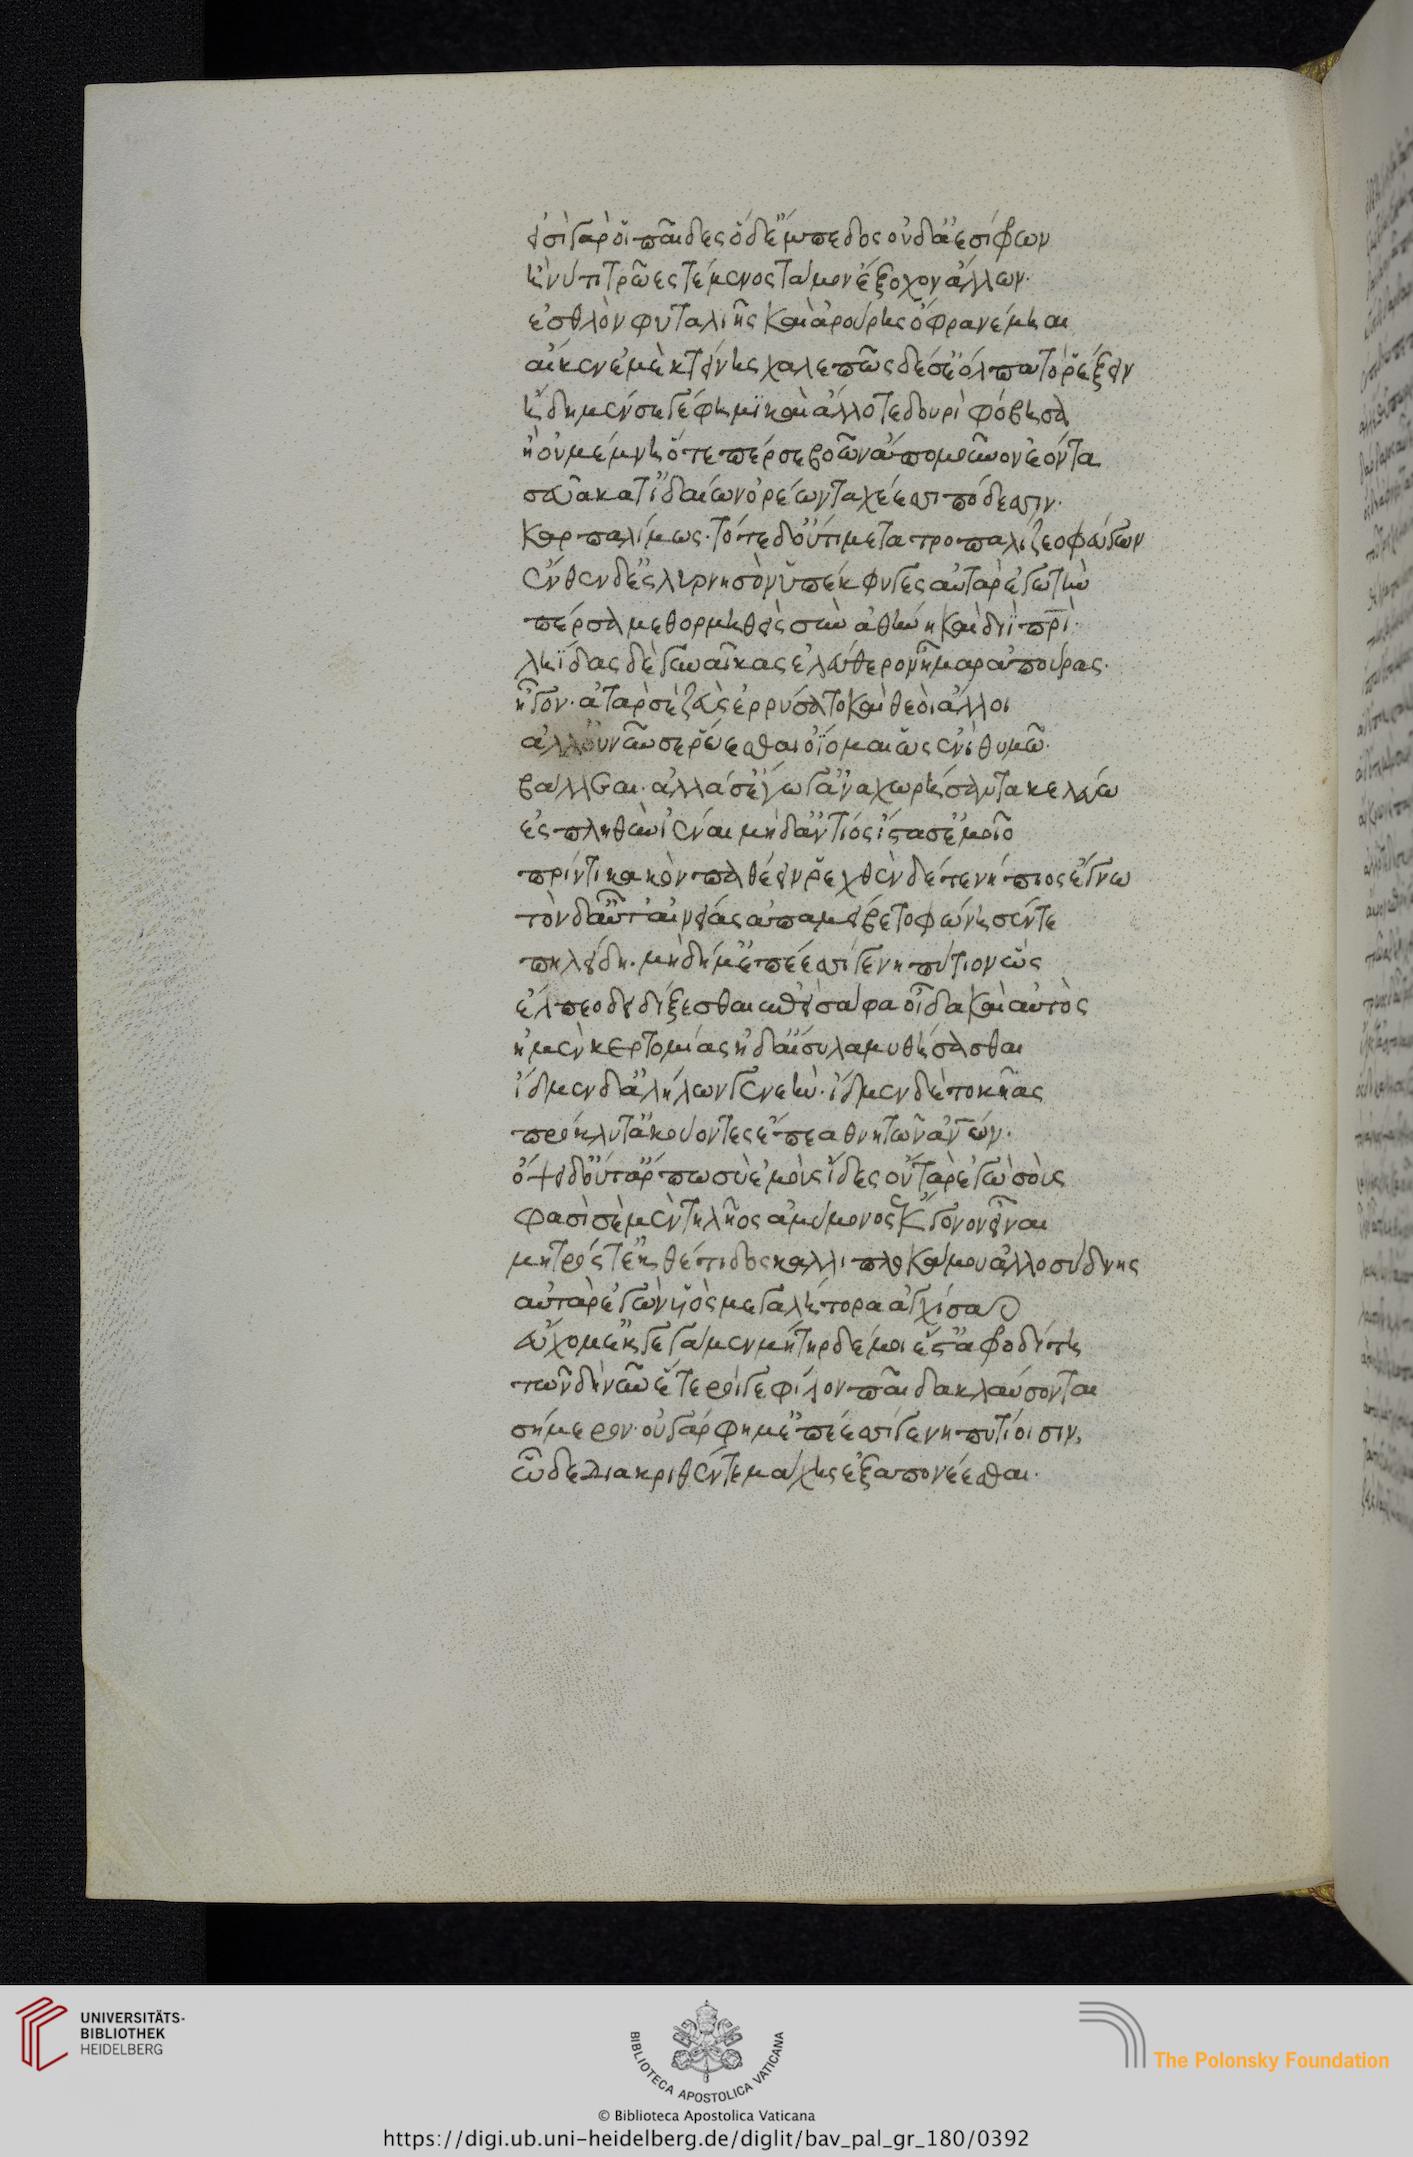 εἰσὶ γάρ οἱ παῖδες ὁ δ' ἔμπεδος οὐδ' ἀεσίφρων
ἤ νύ τι τρῶες τέμενος τάμον ἔξοχον ἄλλων·
ἐσθλὸν φυταλιῆς καὶ ἀρούρης ὄφρα νέμηαι
αἴ κεν ἐμὲ κτείνῃς χαλεπῶς δέ σ' ἔολπα τὸ ῥέξειν
ἤδη μὲν σέ γέ φημι καὶ ἄλλοτε δουρὶ φόβησα
ἢ οὐ μέμνῃ ὅτε πέρ σε βοῶν ἄπο μοῦνον ἐόντα
σεῦα κατ' ἰδαίων ὀρέων ταχέεσσι πόδεσσιν·
καρπαλίμως· τότε δ' οὔτι μετατροπαλίζεο φεύγων
ἔνθεν δ' ἐς λυρνησὸν ὑπέκφυγες αὐτὰρ ἐγὼ τὴν
πέρσα μεθορμηθεὶς σὺν ἀθήνῃ καὶ διῒ πρὶ·
ληϊάδας δὲ γυναῖκας ἐλεύθερον ἦμαρ ἀπούρας·
ἦγον· ἀτὰρ σὲ ζεὺς ἐρρύσατο καὶ θεοὶ ἄλλοι
ἀλλ' οὐ νῦν σε ῥύεσθαι ὀΐομαι ὡς ἐνὶ θυμῷ·
βάλλεαι· ἀλλά σ' ἔγωγ' ἀναχωρήσαντα κελεύω
ἐς πληθὺν ἰέναι μὴ δ' ἀντίος ἵστασ' ἐμοῖο
πρίν τι κακὸν παθέειν ῥεχθὲν δέ τε νήπιος ἔγνω
τὸν δ' αὖτ' αἰνείας ἀπαμείβετο φώνησέν τε
πηλείδη· μὴ δή μ' ἐπέεσσί γε νηπύτιον ὣς
ἔλπεο δειδίξεσθαι ἐπεὶ σάφα οἶδα καὶ αὐτὸς
ἠμὲν κερτομίας ἠδ' αἴσυλα μυθήσασθαι
ἴδμεν δ' ἀλλήλων γενεὴν· ἴδμεν δὲ τοκῆας
πρόκλυτ' ἀκούοντες ἔπεα θνητῶν ἀνων·
ὄψει δ' οὔτ' ἄρ πω σὺ ἐμοὺς ἴδες οὔτ' ἄρ ἐγὼ σοὺς
φασὶ σὲ μὲν πηλῆος ἀμύμονος ἔκγονον εἶναι
μητρός τ' ἐκ θέτιδος καλλιπλοκάμου ἁλοσύδνης
αὐτὰρ ἐγὼν υἱὸς μεγαλήτορα ἀγχίσαο
εὔχομ' ἐκγεγάμεν μήτηρ δέ μοι ἔστ' ἀφροδίτη
τῶν δὴ νῦν ἕτεροί γε φίλον παῖδα κλαύσονται
σήμερον· οὐ γάρ φημ' ἐπέεσσί γε νηπυτίοισιν,
ὧδε διακριθέντε μάχης ἐξαπονέεσθαι·
UNIVERSITÄTS-
BIBLIOTHEK
HEIDELBERG
BIBLIOTECA APOSTOLICA VATICANA
The Polonsky Foundation
© Biblioteca Apostolica Vaticana
https://digi.ub.uni-heidelberg.de/diglit/bav_pal_gr_180/0392